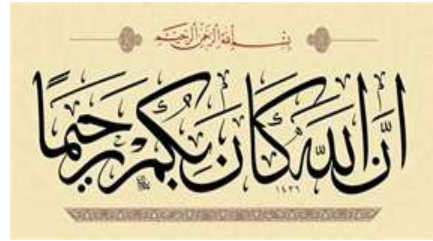 بسم الله الرحمن الرحيم
ان الله كان بكم رحيما
١٤٣٦